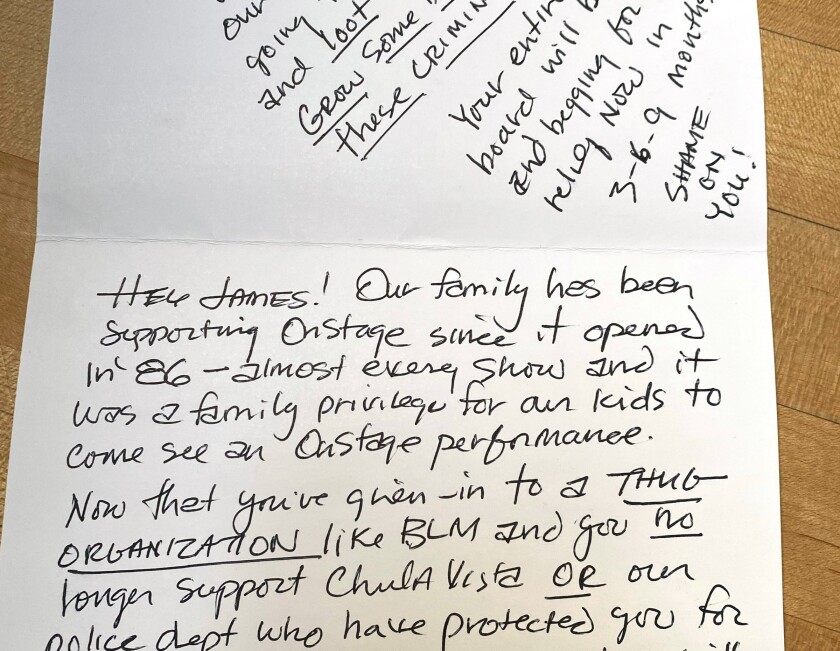 our
going
and loot
GROW some
these CRIMIN
Your entir
board will b
and begging for
relief NOW in
3-6-9 months
SHAME
ON
YOU!
HEY JAMES! Our family has been
supporting OnStage since it opened
in '86 - almost every show and it
was a family privilege for our kids to
come see an OnStage performance.
Now that you've given-in to a THUG
ORGANIZATION like BLM and you no
longer support Chula Vista OR our
police dept who have protected you for